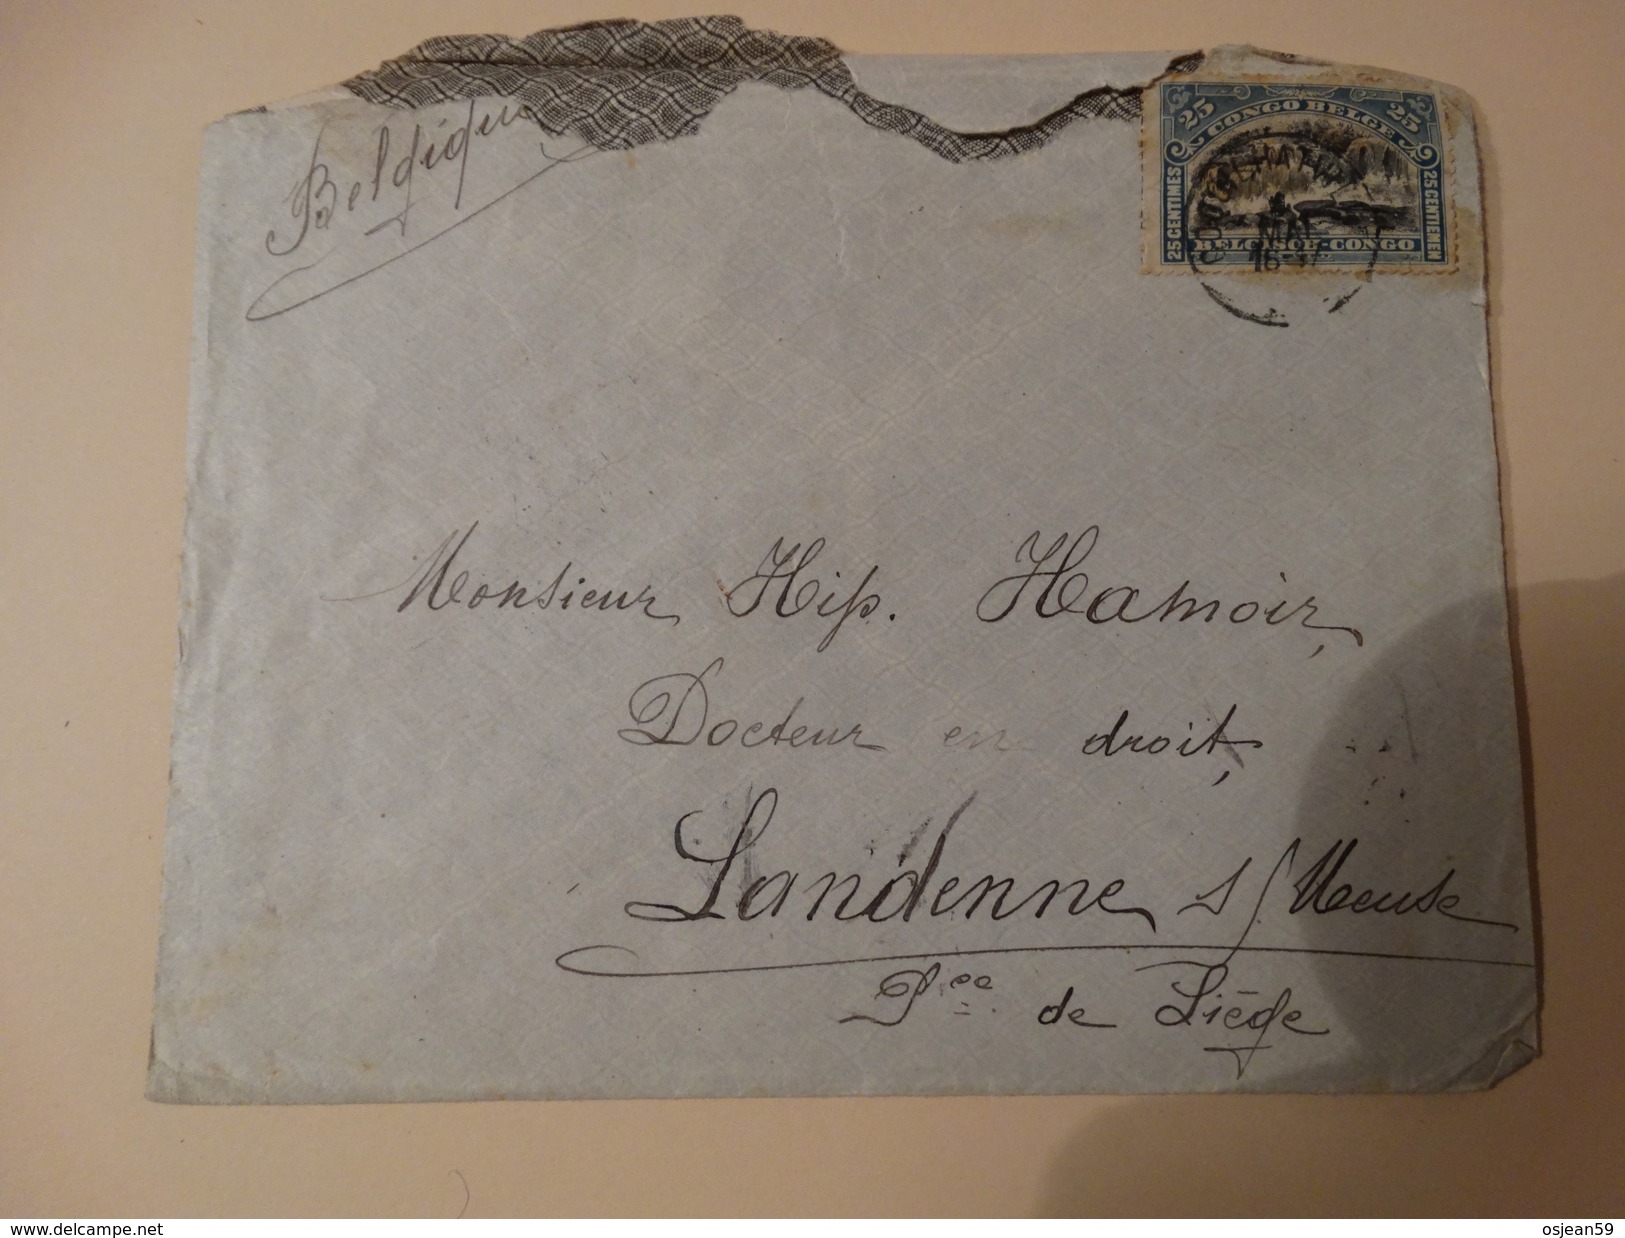 Belgique
25 25
CONGO BELGE
25 CENTIMES
25 CENTIEMEN
BELGISCH-CONGO
MAI
16-17
Monsieur Hip. Hamoir,
Docteur en droit,
Landenne s/Meuse
Pce de Liége
www.delcampe.net
osjean59